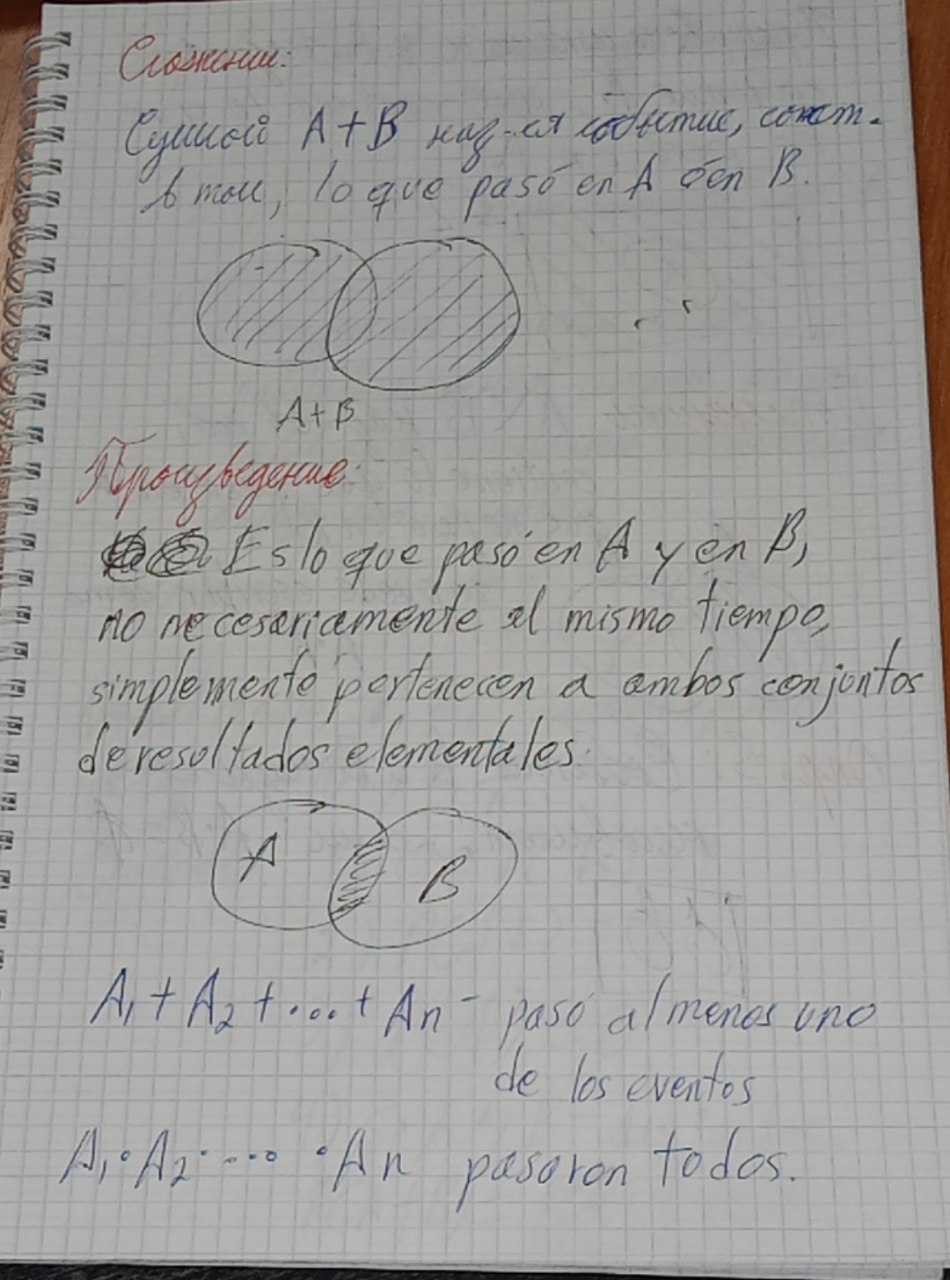 Сложение:
Суммой A+B наз-ся событие, сост.
в том, lo que pasó en A ó en B.
A+B
Произведение:
Es lo que pasó en A y en B,
no necesariamente al mismo tiempo,
simplemente pertenecen a ambos conjuntos
de resultados elementales.
A
B
A₁ + A₂ + ... + An - pasó al menos uno
de los eventos
A₁ · A₂ · ... · An pasaron todos.